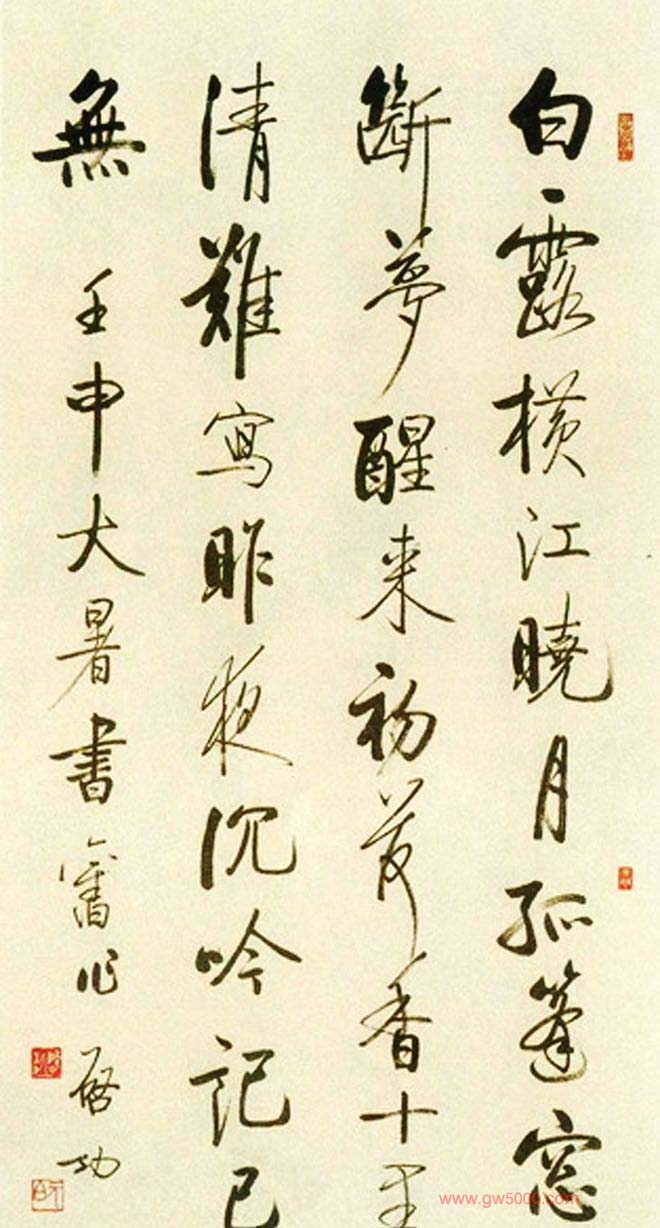 白露橫江曉月孤篷窓
斷夢醒来初荷香十里
清難寫昨夜沉吟記已
無 壬申大暑書舊作 启功
www.gw5000.com